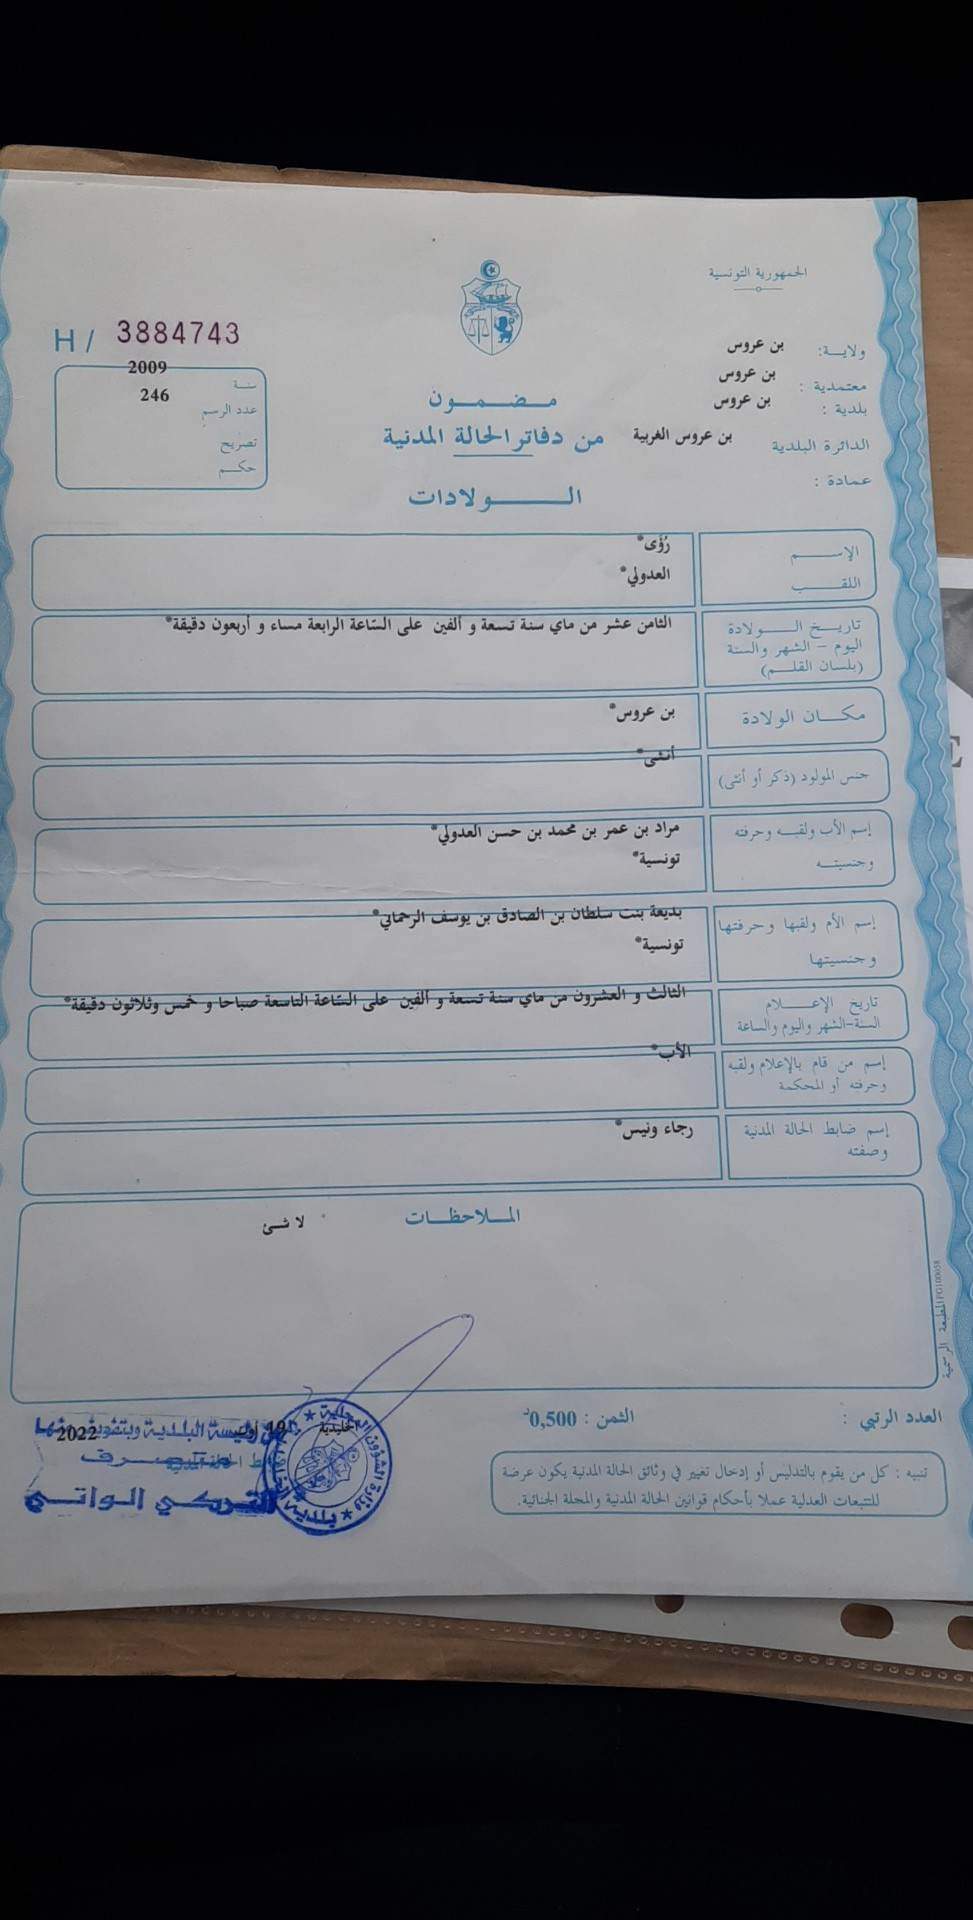 الجمهورية التونسية
ولاية: بن عروس
معتمدية : بن عروس
بلدية : بن عروس
الدائرة البلدية بن عروس الغربية
عمادة :
H / 3884743
سنة 2009
عدد الرسم 246
تصريح
حكم
مضمون
من دفاتر الحالة المدنية
الولادات
الإسم رُؤى*
اللقب العدولي*
تاريخ الولادة
اليوم - الشهر والسنة
(بلسان القلم)
الثامن عشر من ماي سنة تسعة و ألفين على السّاعة الرابعة مساء و أربعون دقيقة*
مكان الولادة بن عروس*
جنس المولود (ذكر أو أنثى) أنثى*
إسم الأب ولقبه وحرفته مراد بن عمر بن محمد بن حسن العدولي*
وجنسيته تونسية*
إسم الأم ولقبها وحرفتها بديعة بنت سلطان بن الصادق بن يوسف الرحماني*
وجنسيتها تونسية*
تاريخ الإعلام الثالث و العشرون من ماي سنة تسعة و ألفين على السّاعة التاسعة صباحا و خمس وثلاثون دقيقة*
السنة-الشهر واليوم والساعة
إسم من قام بالإعلام ولقبه الأب*
وحرفته أو المحكمة
إسم ضابط الحالة المدنية رجاء ونيس*
وصفته
الملاحظات
لا شئ
المطبعة الرسمية PG100058
العدد الرتبي : الثمن : 0,500د
تنبيه : كل من يقوم بالتدليس أو إدخال تغيير في وثائق الحالة المدنية يكون عرضة
للتتبعات العدلية عملا بأحكام قوانين الحالة المدنية والمجلة الجنائية.
الخليدية 19 2022
رئيسة البلدية وبتفويض منها
متصرف
التركي الواتي
وزارة الشؤون المحلية
بلدية